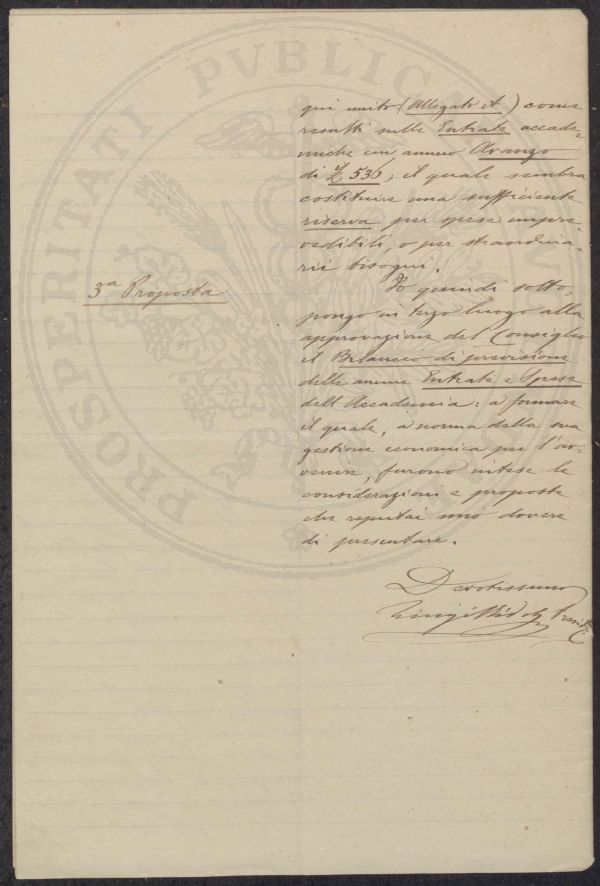 PROSPERITATI PVBLICAE
qui unito (Allegato A) come
risulti nelle Entrate accade-
miche un annuo Avanzo
di £ 536, il quale sembra
costituire una sufficiente
riserva per spese impre
vedibili, o per straordina-
rii bisogni.
3ª Proposta
Io quindi sotto-
pongo in terzo luogo alla
approvazione del Consiglio
il Bilancio di previsione
delle annue Entrate e Spese
dell'Accademia: a formare
il quale, a norma della sua
gestione economica per l'av-
venire, furono intese le
considerazioni e proposte
che reputai mio dovere
di presentare.
Devotissimo
Luigi